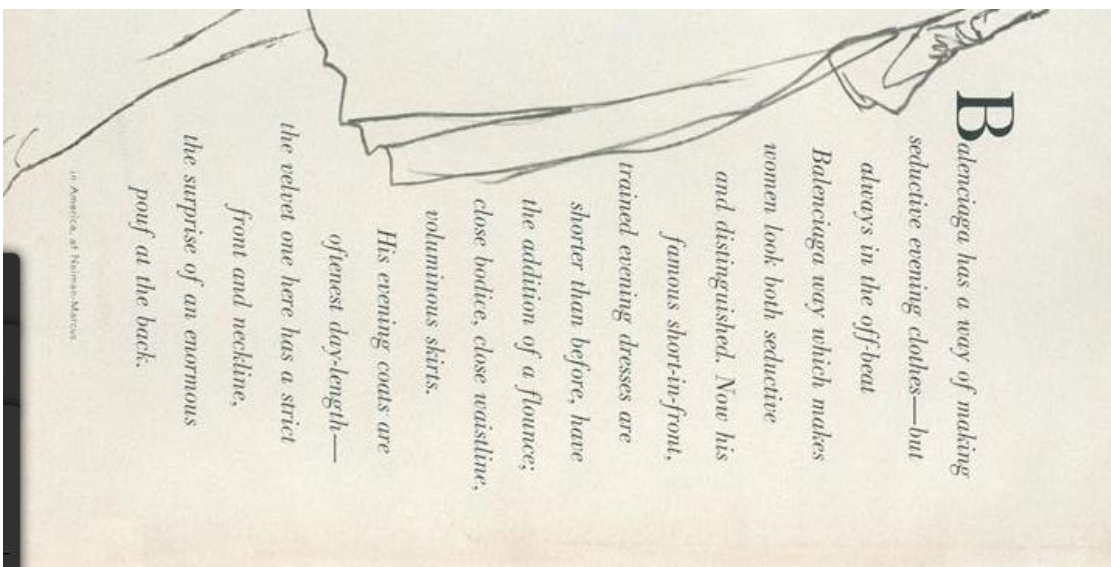 Balenciaga has a way of making
seductive evening clothes—but
always in the off-beat
Balenciaga way which makes
women look both seductive
and distinguished. Now his
famous short-in-front,
trained evening dresses are
shorter than before, have
the addition of a flounce;
close bodice, close waistline,
voluminous skirts.
His evening coats are
oftenest day-length—
the velvet one here has a strict
front and neckline,
the surprise of an enormous
pouf at the back.
in America, at Neiman-Marcus